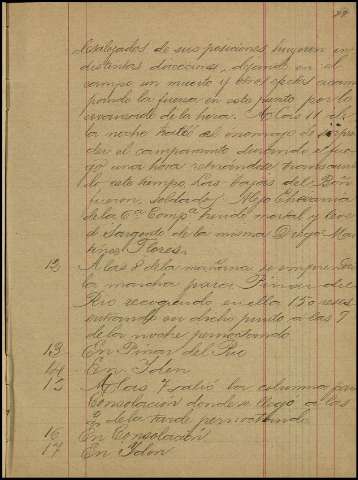 desalojados de sus posiciones huyeron en
distintas direcciones, dejando en el
campo un muerto y otros efectos acam
pando la fuerza en este punto por lo
avanzado de la hora. A las 11 de
la noche trató el enemigo de sorpren
der el campamento durando el fue
go una hora retirándose
este tiempo. Las bajas del Bón
fueron, soldado Alejo
de la 6ª Compª herido mortal y leve
el Sargento de la misma Diego Mar
tinez Flores.
12 A las 8 de la mañana se emprendió
la marcha para Pinar del
Rio recogiendo en ella 150 reses
entrando en dicho punto a las 7
de la noche pernoctando
13 En Pinar del Rio
14 En Idem
15 A las 7 salió la columna para
Consolación donde se llegó a las
5 de la tarde pernoctando
16 En Consolación
17 En Idem